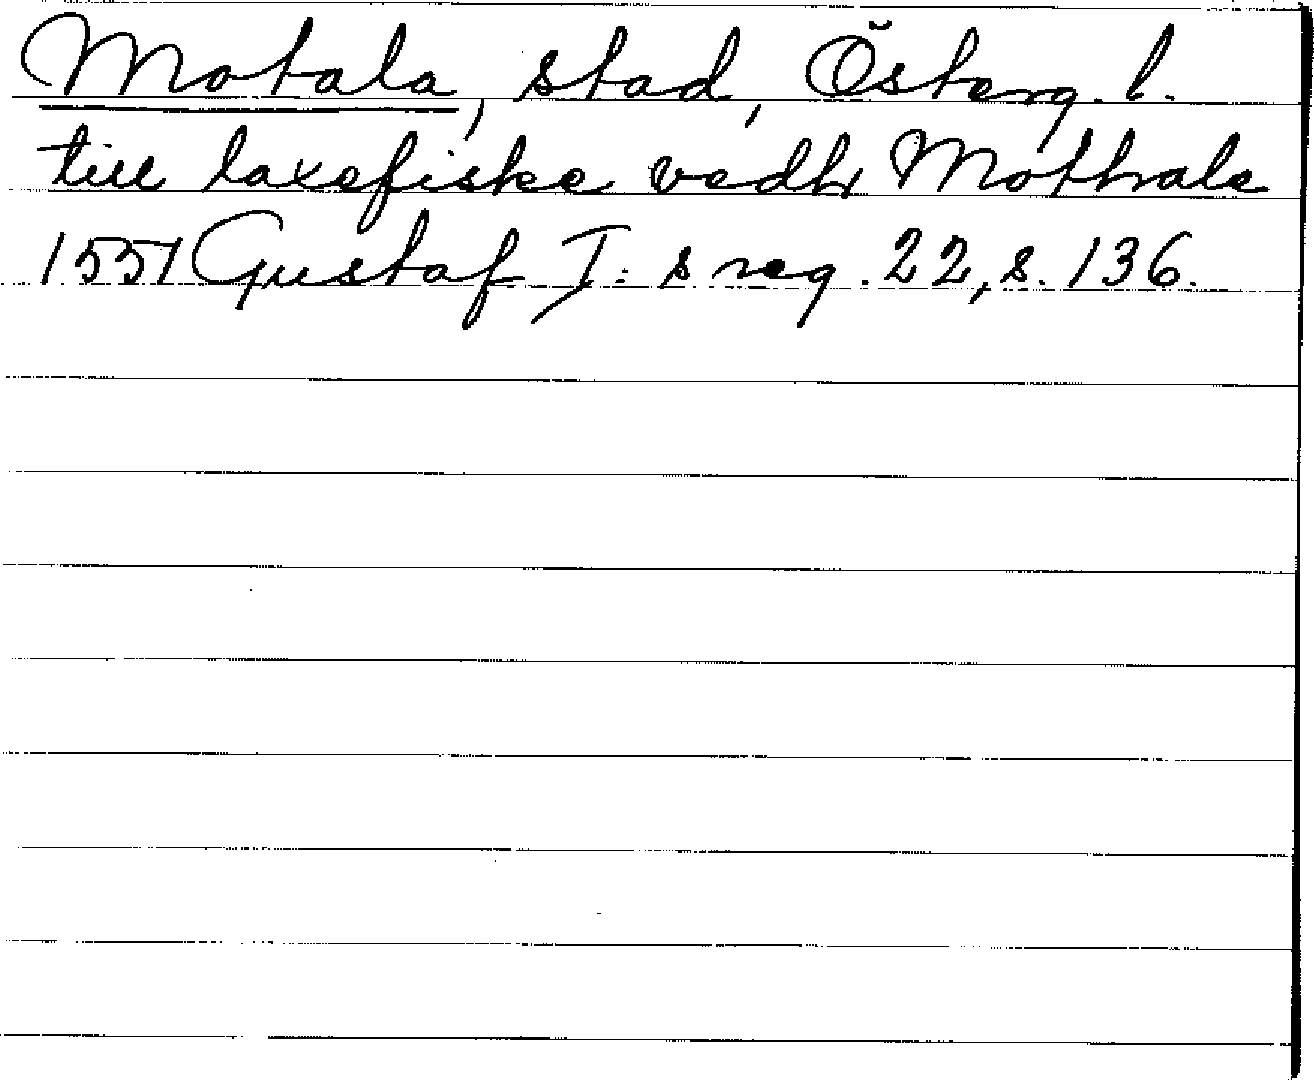 Motala, stad, Österg. l.
till laxefiske vedh Mothale
1551 Gustaf I:s reg. 22, s. 136.